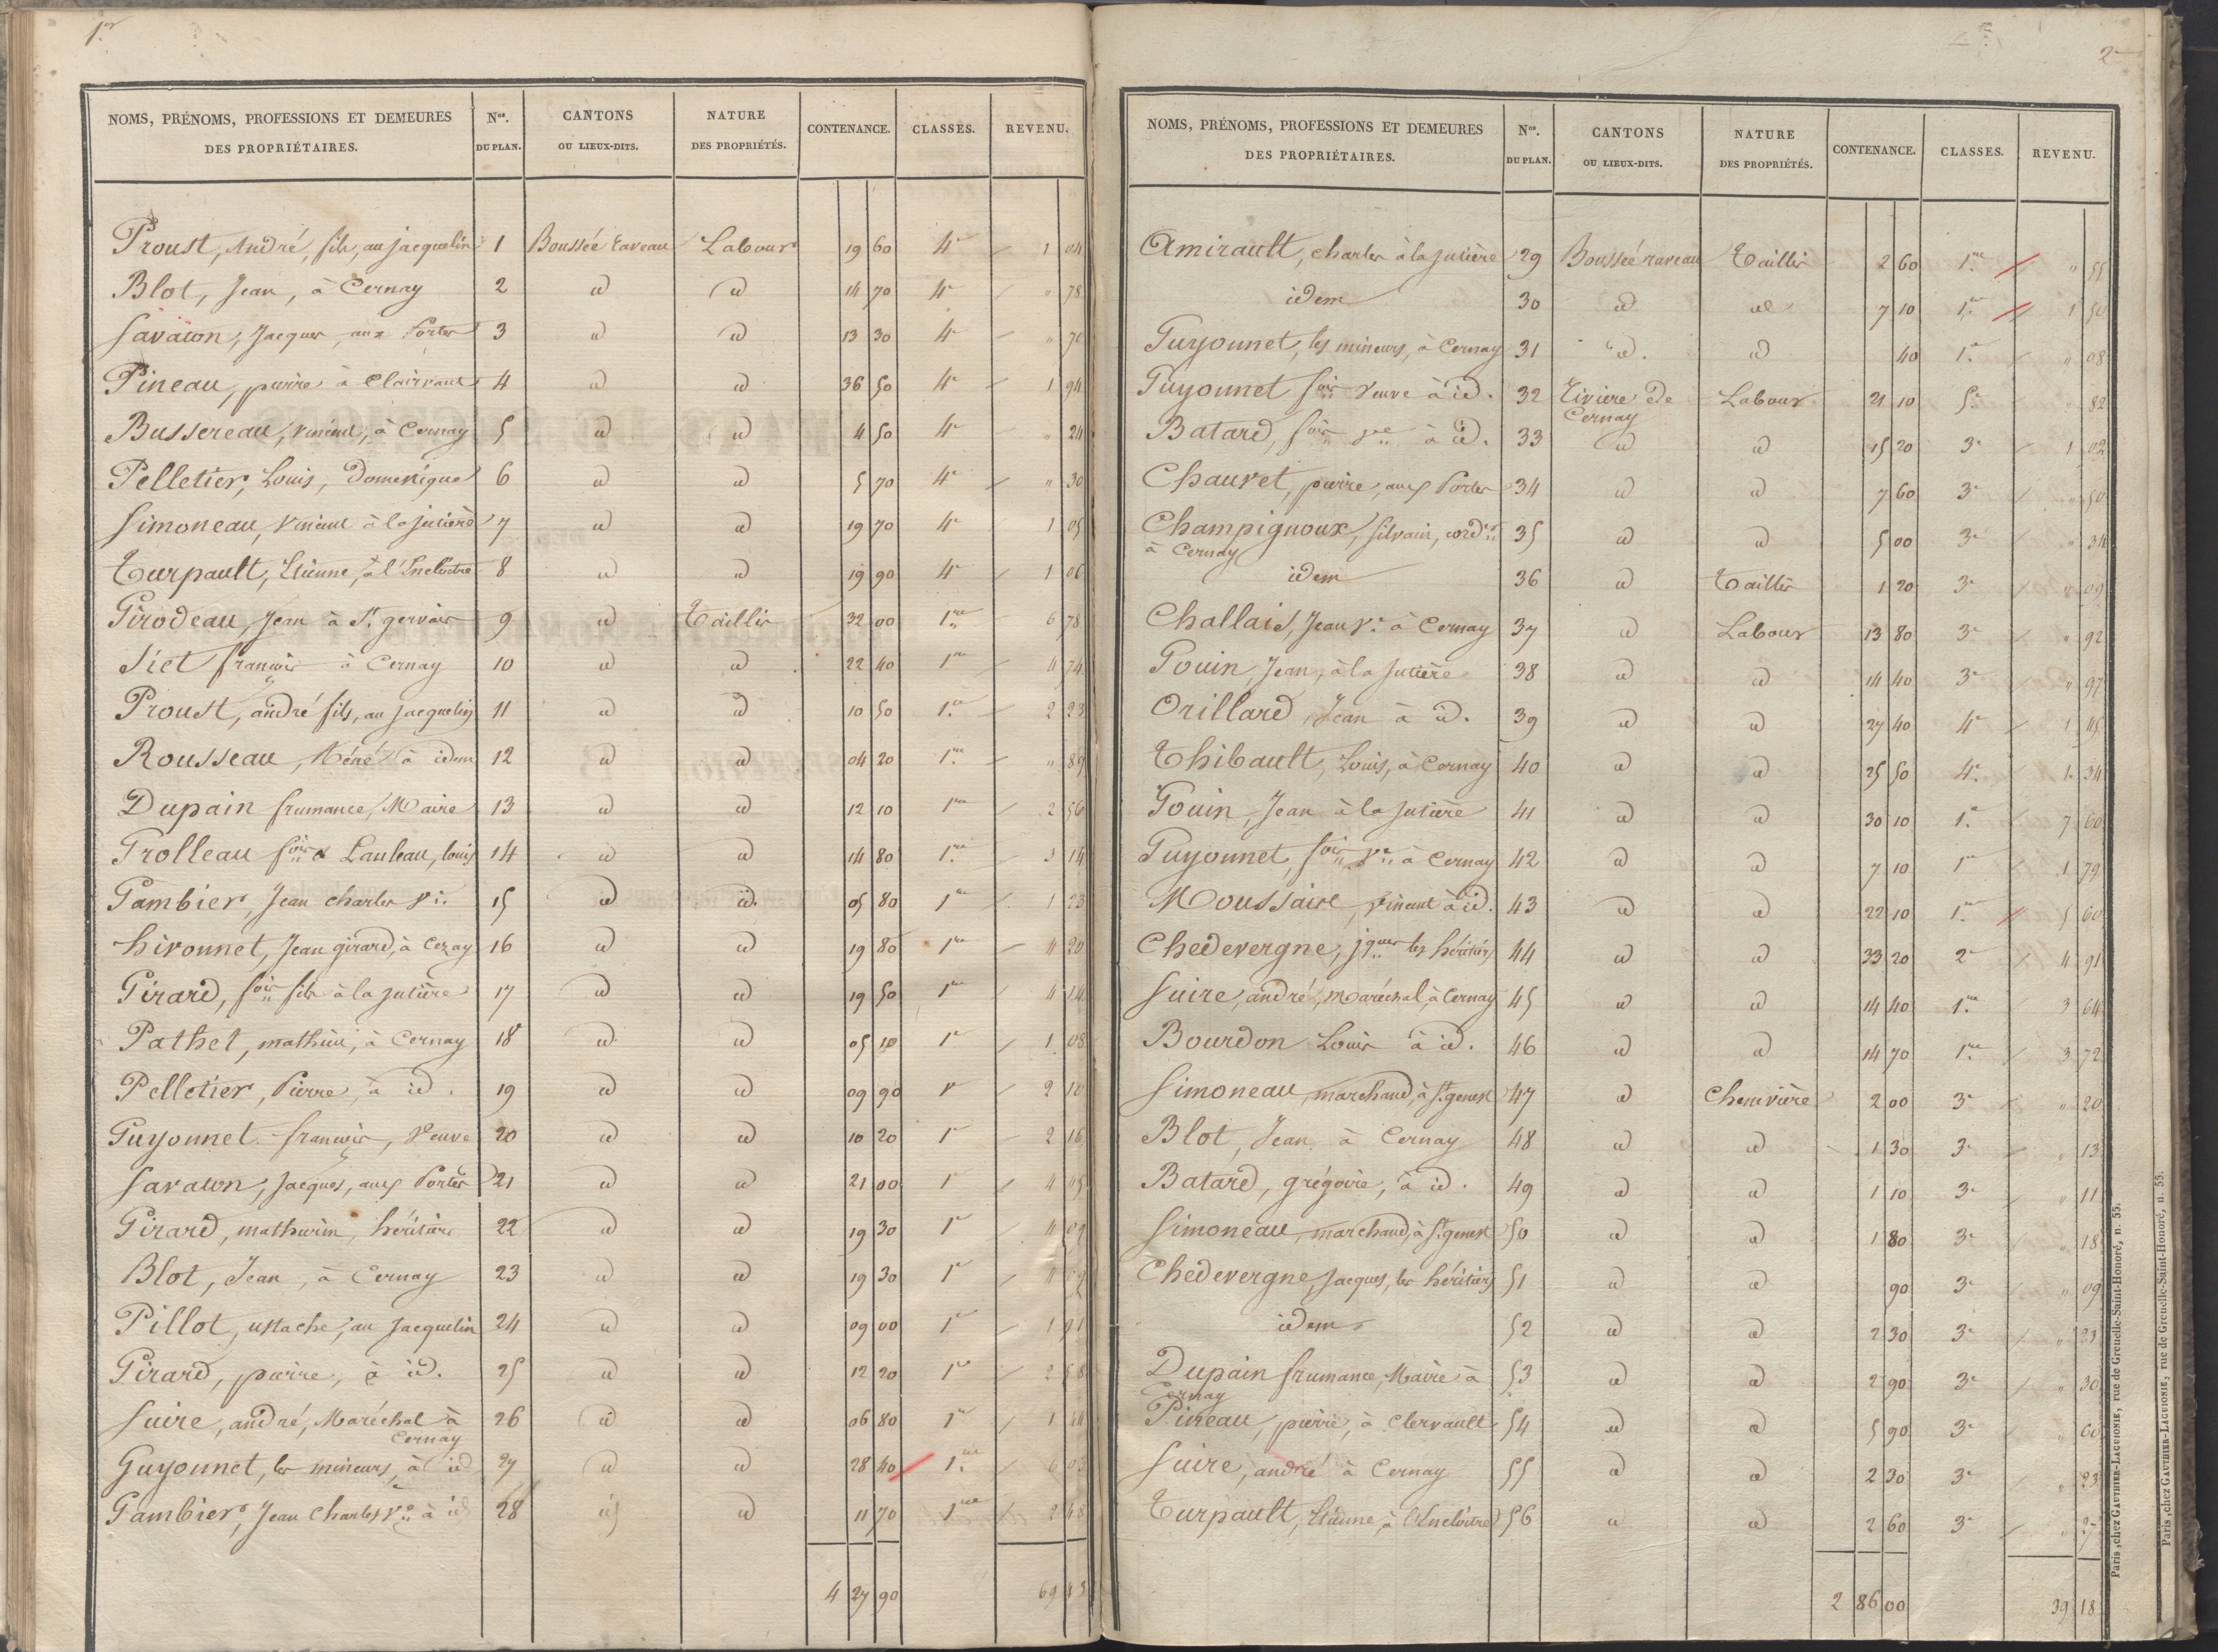 1er
NOMS, PRÉNOMS, PROFESSIONS ET DEMEURES DES PROPRIÉTAIRES. Nos. DU PLAN. CANTONS OU LIEUX-DITS. NATURE DES PROPRIÉTÉS. CONTENANCE. CLASSES. REVENU.
Proust, André, fils, au jacquelin 1 Boussée raveau Labour 19 60 4e 1 04
Blot, Jean, à Cernay 2 id id 14 70 4e " 78
Savaton, Jacques, aux Portes 3 id id 13 30 4e " 70
Pineau, pierre à Clairvaux 4 id id 36 50 4e 1 94
Bussereau, vincent, à Cernay 5 id id 4 50 4e " 24
Pelletier, Louis, Domestique 6 id id 5 70 4e " 30
Simoneau, vincent à la jutière 7 id id 19 70 4e 1 05
Turpault, Etienne, à l'Encloitre 8 id id 19 90 4e 1 06
Girodeau, Jean à St. gervais 9 id Taillis 32 00 1re 6 78
Siet françois à Cernay 10 id id 22 40 1re 4 74
Proust, andré fils, au jacquelin 11 id id 10 50 1re 2 23
Rousseau, Réné à idem 12 id id 04 20 1re " 89
Dupain frumance, Maire 13 id id 12 10 1re 2 56
Trolleau fois & Lauleau, louis 14 id id 14 80 1re 3 14
Gambier, Jean charles Ve. 15 id id. 05 80 1re 1 23
hivonnet, Jean girard, à Cezay 16 id id 19 80 1re 4 20
Girard, fois fils à la jutière 17 id id 19 50 1re 4 14
Pathet, mathieu, à Cernay 18 id id 05 10 1re 1 08
Pelletier, Pierre, à id. 19 id id 09 90 1re 2 10
Guyonnet françois, Veuve 20 id id 10 20 1re 2 16
Savaton, Jacques, aux Portes 21 id id 21 00 1re 4 45
Girard, mathurin, héritiers 22 id id 19 30 1re 4 09
Blot, Jean, à Cernay 23 id id 19 30 1re 4 09
Pillot, ustache, au Jacquelin 24 id id 09 00 1re 1 91
Girard, pierre, à id. 25 id id 12 20 1re 2 58
Suire, andré, Maréchal à Cernay 26 id id 06 80 1re 1 44
Guyonnet, les mineurs, à id 27 id id 28 40 1re 6 03
Gambier, Jean Charles Ve. à id 28 id id 11 70 1re 2 48
4 27 90 69 43
2e
NOMS, PRÉNOMS, PROFESSIONS ET DEMEURES DES PROPRIÉTAIRES. Nos. DU PLAN. CANTONS OU LIEUX-DITS. NATURE DES PROPRIÉTÉS. CONTENANCE. CLASSES. REVENU.
Amirault, charles à la jutière 29 Boussée raveau Taillis 2 60 1re " 55
idem 30 id id 7 10 1re 1 50
Guyonnet, les mineurs, à Cernay 31 id. id 40 1re " 08
Guyonnet fois Veuve à id. 32 Rivière de Cernay Labour 21 10 5e " 82
Batard, fois Ve à id. 33 id id 15 20 3e 1 02
Chauvet, pierre, aux Portes 34 id id 7 60 3e " 50
Champignoux, silvain, cordr. à Cernay 35 id id 5 00 3e " 34
idem 36 id Taillis 1 20 3e " 09
Challais, Jean Ve. à Cernay 37 id Labour 13 80 3e " 92
Gouin, Jean, à la jutière 38 id id 14 40 3e " 97
Orillard, Jean à id. 39 id id 27 40 4e 1 45
Thibault, Louis, à Cernay 40 id id 25 50 4e 1 34
Gouin, Jean à la jutière 41 id id 30 10 1re 7 60
Guyonnet, fois Ve à Cernay 42 id id 7 10 1re 1 79
Moussaire, vincent à id. 43 id id 22 10 1re 5 60
Chedevergne, jques les héritiers 44 id id 33 20 2e 4 91
Suire, andré, maréchal, à Cernay 45 id id 14 40 1re 3 64
Bourdon Louis à id. 46 id id 14 70 1re 3 72
Simoneau, marchand, à St. genest 47 id Chenvière 2 00 3e " 20
Blot, Jean à Cernay 48 id id 1 30 3e " 13
Batard, grégoire, à id. 49 id id 1 10 3e " 11
Simoneau, marchand, à St. genest 50 id id 1 80 3e " 18
Chedevergne, Jacques, les héritiers 51 id id 90 3e " 09
idem 52 id id 2 30 3e " 23
Dupain frumance, Maire à Cernay 53 id id 2 90 3e " 30
Pineau, pierre, à Clervault 54 id id 5 90 3e " 60
Suire, andré à Cernay 55 id id 2 30 3e " 23
Turpault, Etienne, à l'Encloitre 56 id id 2 60 3e " 27
2 86 00 39 18
Paris, chez GAUTHIER-LAGUIONIE, rue de Grenelle-Saint-Honoré, n. 55.
Paris, chez GAUTHIER-LAGUIONIE, rue de Grenelle-Saint-Honoré, n. 55.